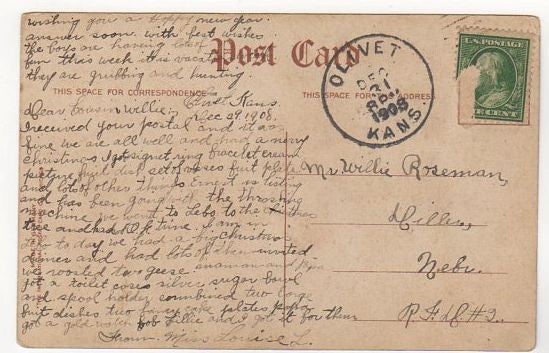 wishing you a Happy new year.
answer soon. with best wishes
the boys are having lots of
fun this week it is vacation
they are grubbing and hunting.
Post Card
THIS SPACE FOR CORRESPONDENCE
THIS SPACE FOR ADDRESS
OLIVET
DEC
31
1908
KANS.
U.S. POSTAGE
1 CENT 1
Olivet Kans.
Dec 29 1908.
Dear Cousin Willie:
I received your postal and it was
fine we are all well and had a merry
Christmas I got signet ring bracelet cream
picture fruit dish set of vases fruit plate
and lots of other things Ernest is
and has been going with the threshing
machine we went to Lebo to the
tree and had a fine time. I am in
Lebo to day we had a big Christmas
dinner and had lots of them invited
we roosted two geese. mamma and Papa
got a toilet cases silver sugar bowl
and spoon holder combined two large
fruit dishes two fancy cake plates
got a gold watch fob Willie and I got it for them
From Miss Louise L.
Mr. Willie Roseman,
Hiller,
Nebr.
R.F.D. #2.